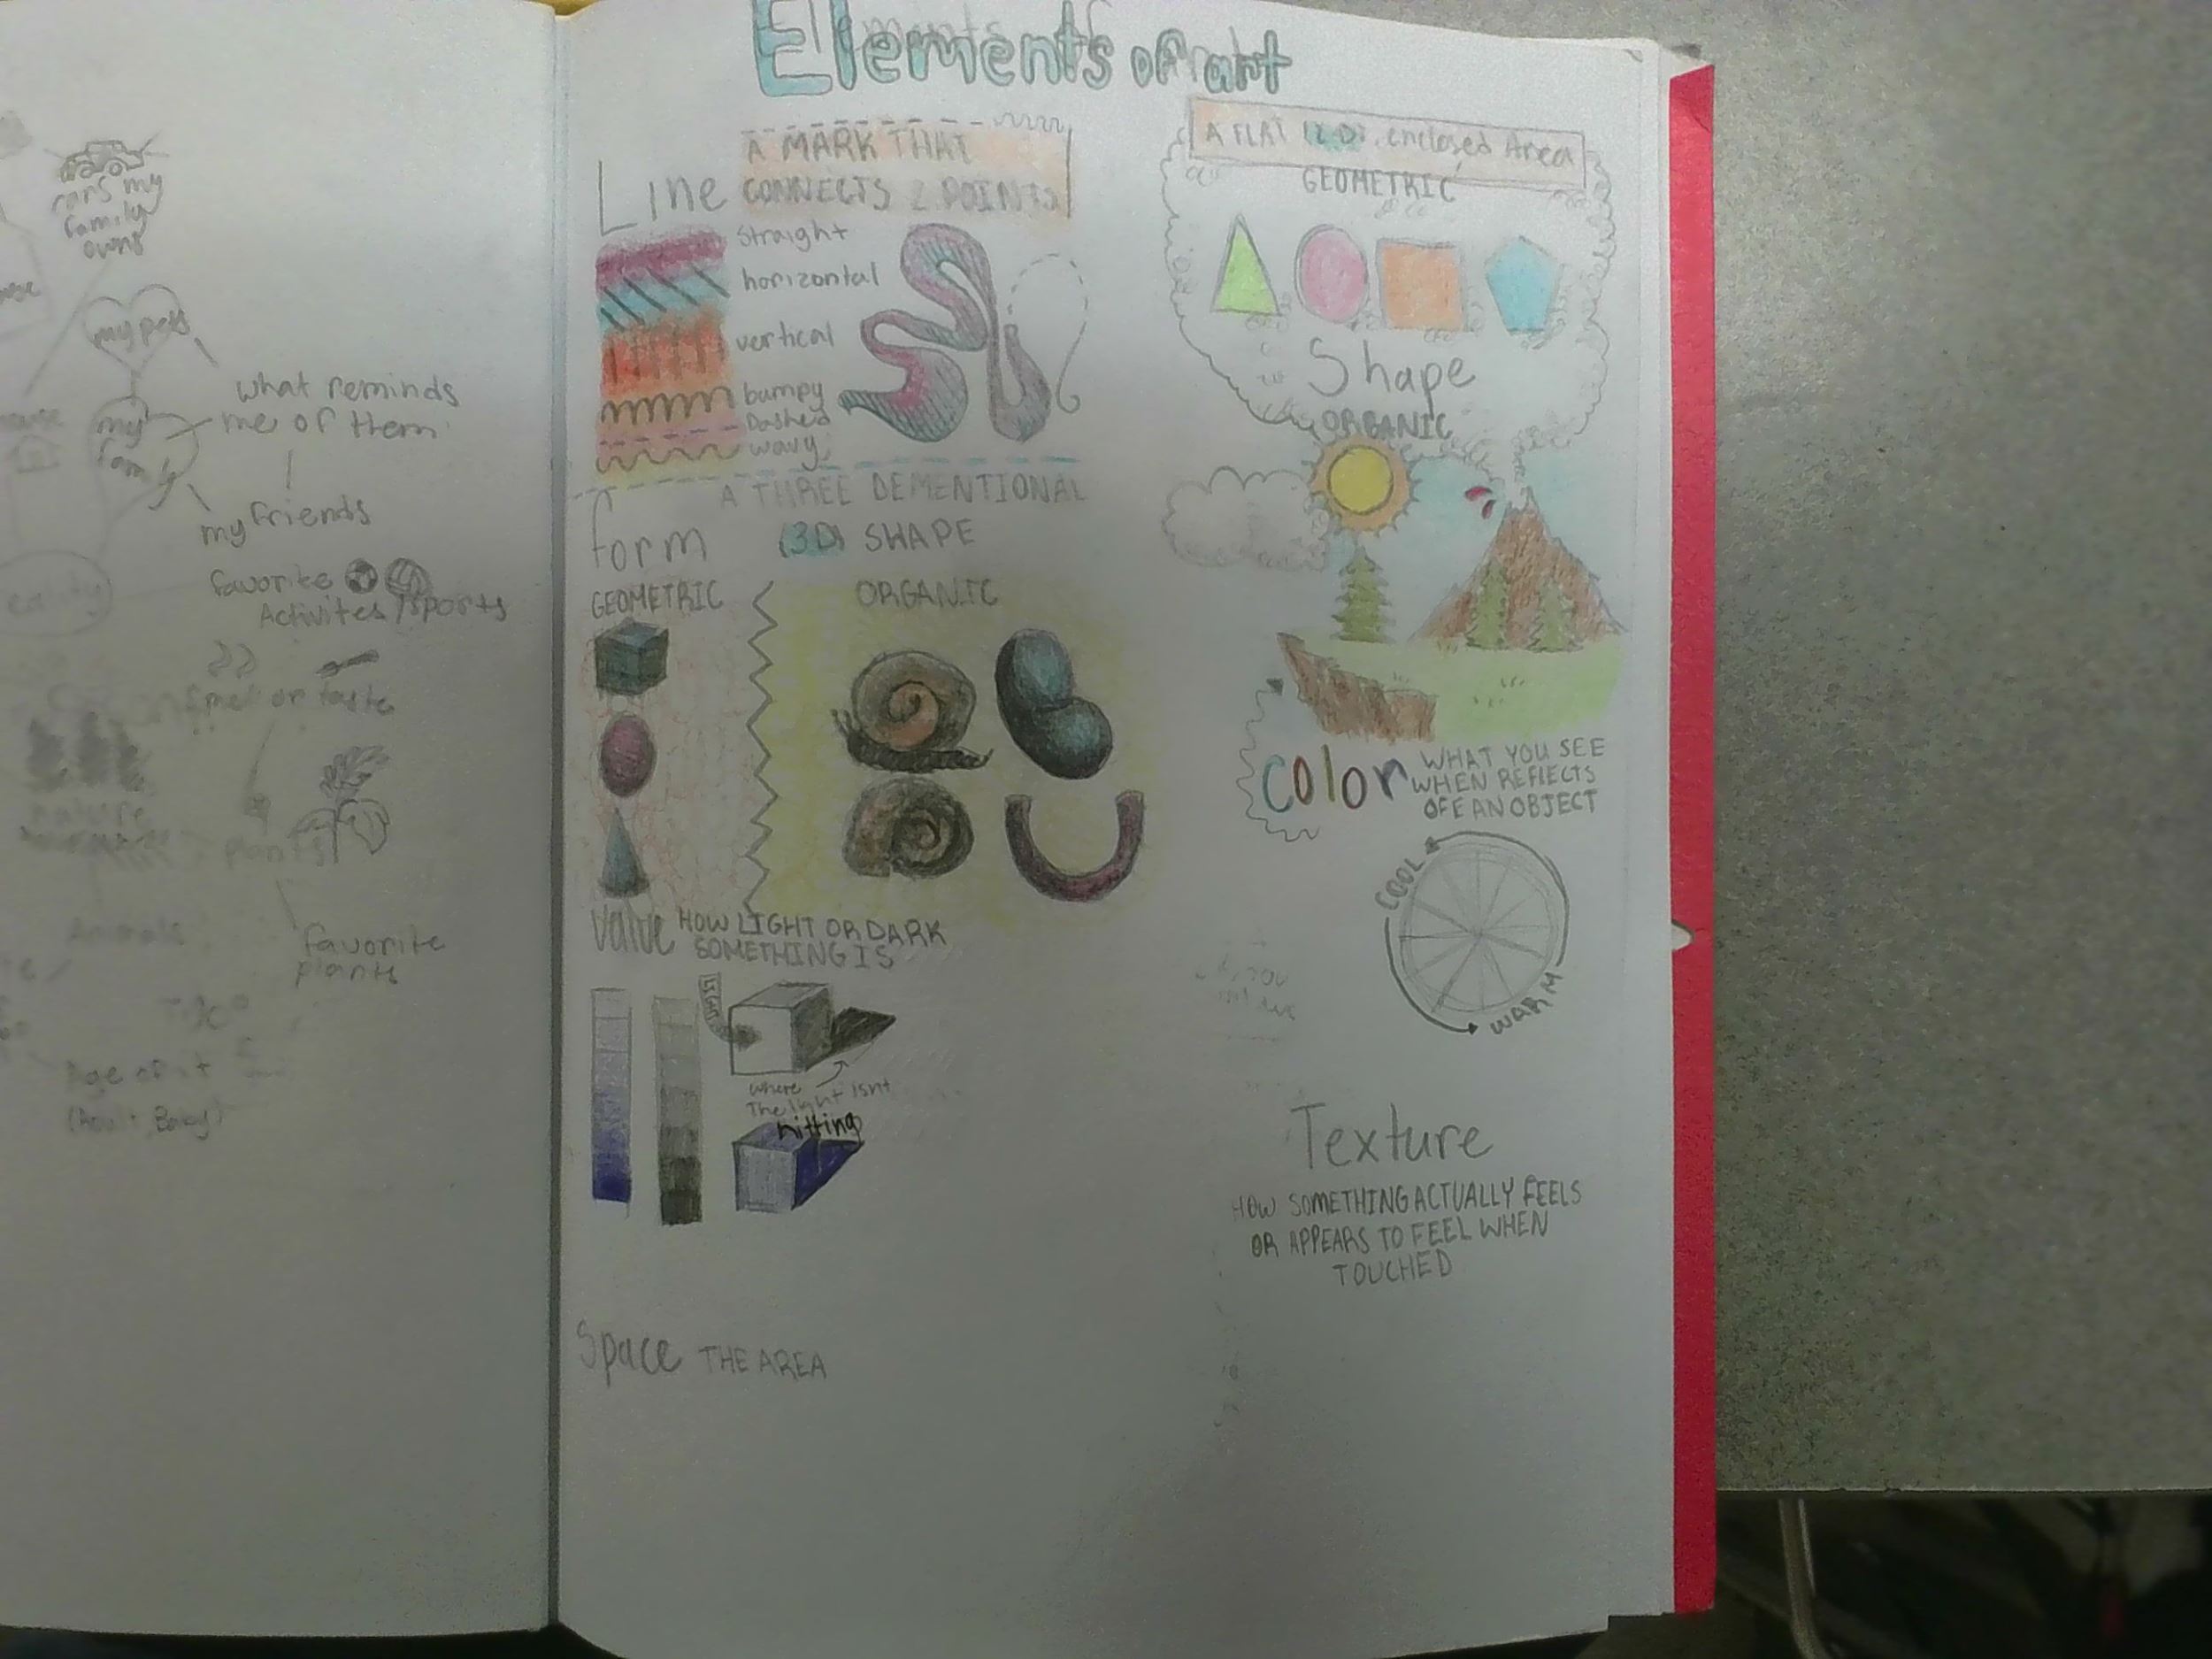 Elements of art
Line
A MARK THAT
CONNECTS 2 POINTS
straight
horizontal
vertical
bumpy
Dashed
wavy
A FLAT (2D), enclosed Area
GEOMETRIC
Shape
ORGANIC
form
A THREE DEMENTIONAL
(3D) SHAPE
GEOMETRIC
ORGANIC
color
WHAT YOU SEE
WHEN REFLECTS
OFF AN OBJECT
COOL
WARM
Value
HOW LIGHT OR DARK
SOMETHING IS
LIGHT
where
The light isnt
hitting
Texture
HOW SOMETHING ACTUALLY FEELS
OR APPEARS TO FEEL WHEN
TOUCHED
Space THE AREA
cars my
family
owns
my pets
what reminds
me of them
my
family
my friends
favorite
Activites/sports
smell or taste
nature
plants
Animals
favorite
plants
Age of it
(Adult, Baby)